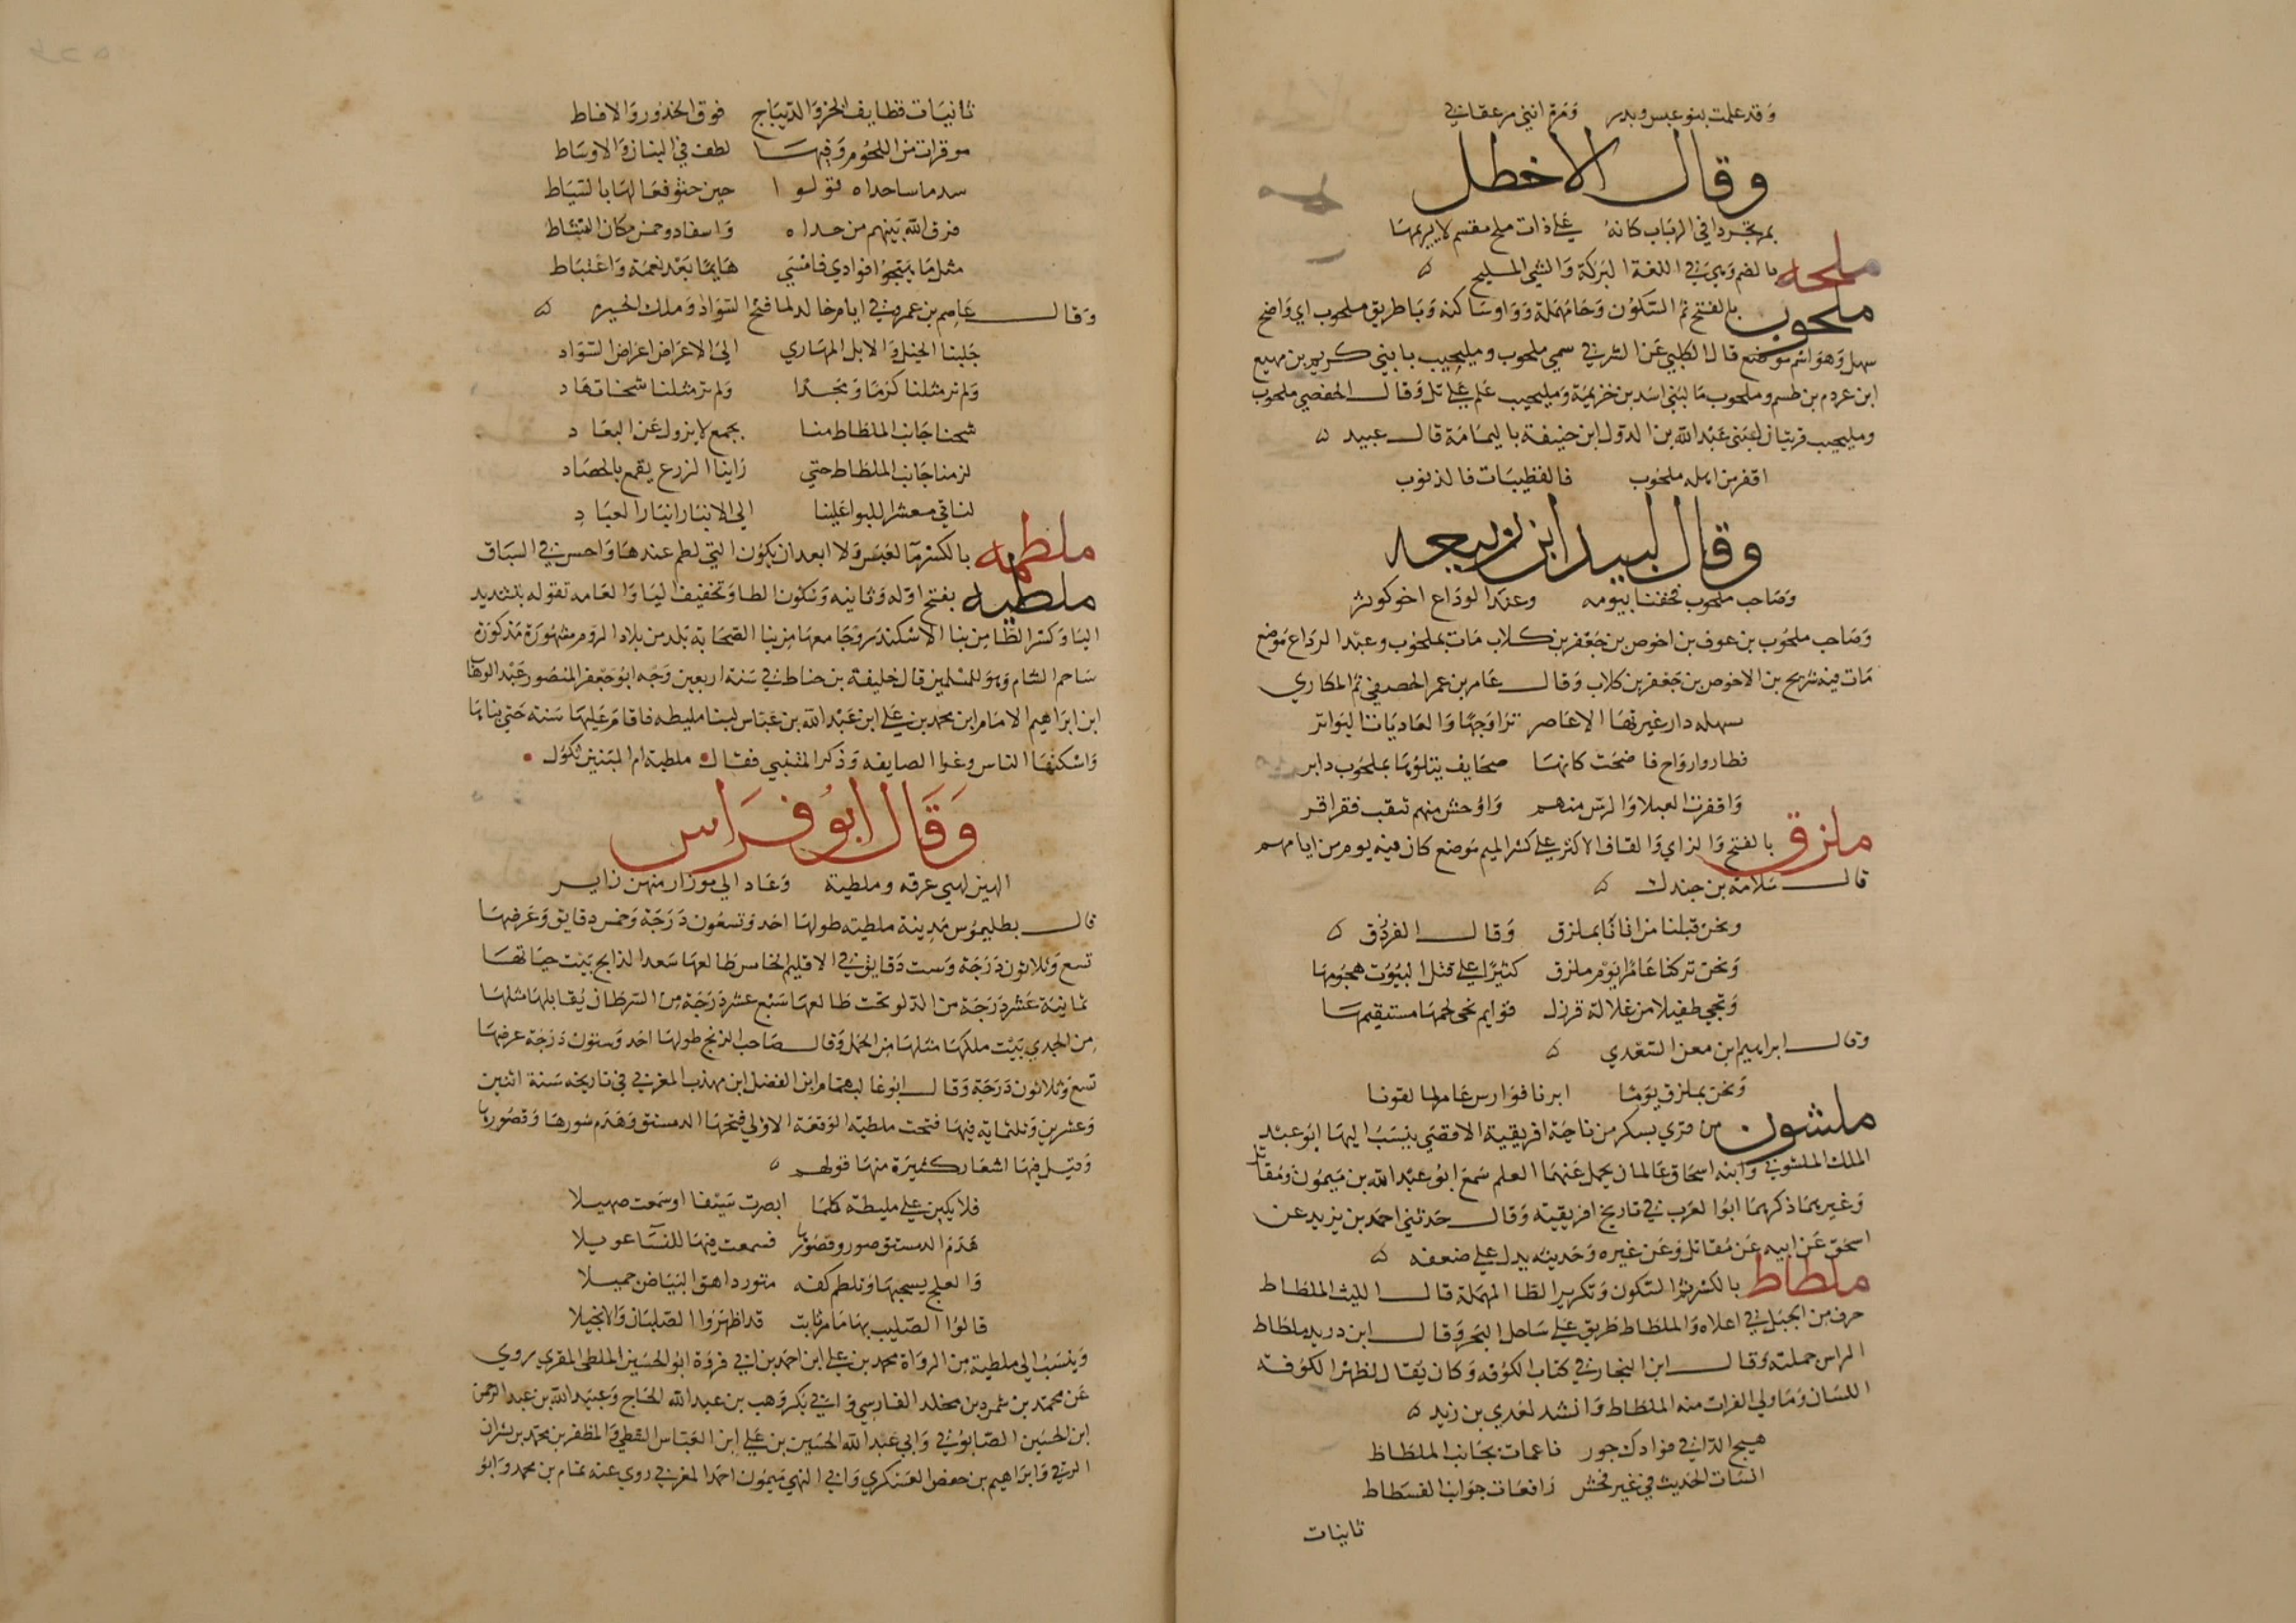 وقد علمت بنو عبس وبدر ومرة انني مر عقابي
وقال الاخطل
بمرتجز داني الرباب كانه علي ذات ملح مقسم لا يريمها
ملحه بالضم وهي في اللغة البركة والشي المليح ه
ملحوب بالفتح ثم السكون وحا مهملة وواو ساكنه وبا طريق ملحوب اي واضح
سهل وهو اسم موضع قال الكلبي عن الشرقي سمي ملحوب ومليحيب بابني كريم بن مهيع
ابن عردم بن طسم وملحوب ما لبني اسد بن خزيمة ومليحيب علم علي تل وقال الحفصي ملحوب
ومليحيب قريتان لبني عبد الله بن الدول ابن حنيفة باليمامة قال عبيد ه
اقفر من اهله ملحوب فالقطبيات فالذنوب
وقال لبيد ابن ربيعه
وصاحب ملحوب فجعنا بيومه وعند الوداع اخو كوثر
وصاحب ملحوب بن عوف بن احوص بن جعفر بن كلاب مات بملحوب وعند الرداع موضع
مات فيه شريح بن الاحوص بن جعفر بن كلاب وقال عامر بن عمر الحصيني ثم المكاري
سهله دار غيرتها الاعاصر تراوحها والعاديات البواتر
قطار وارواح فاضحت كانها صحايف يتلوها بملحوب دابر
واقفرت العبلا والرس منهم واوحش منهم نيقب فقراقر
ملزق بالفتح والزاي والقاف الاكثر علي كسر الميم موضع كان فيه يوم من ايامهم
قال سلامة بن جندل ه
ونحن قتلنا من اتانا بملزق وقال الفرزدق ه
ونحن تركنا عامرا يوم ملزق كثيرا علي قتل البيوت هجومها
ونجي طفيلا من علالة قرزل قوايم نحي لحمها مستقيمها
وقال ابراهيم ابن معن السعدي ه
ونحن بملزق يوما ابرنا فوارس عامر لما لقونا
ملشون من قري بسكر من ناحية افريقية الاقصي ينسب اليها ابو عبد
الملك الملشوني وابنه اسحاق عالمان يحمل عنهما العلم سمع ابو عبد الله بن ميمون ومقاتل
وغيرهما ذكرهما ابوا العرب في تاريخ افريقية وقال حدثني احمد بن يزيد عن
اسحق عن ابيه عن مقاتل وعن غيره وحديثه يدل علي ضعفه ه
ملطاط بالكسر ثم السكون وتكرير الطا المهملة قال الليث الملطاط
حرف من الجبل في اعلاه والملطاط طريق علي ساحل البحر وقال ابن دريد ملطاط
الراس جملته وقال ابن النجار في كتاب الكوفه وكان يقال لظهر الكوفة
اللسان وما ولي الفرات منه الملطاط وانشد لعدي بن زيد ه
هيج الداني فوادك حور ناعمات بجانب الملطاط
انسات الحديث في غير فحش رافعات جوانب الفسطاط
ثانيات
ثانيات قطايف الخز والديباج فوق الخدور والانماط
موقرات من اللحوم وفيها لطف في البنان والاوساط
حين حثو فعالها بالسياط
فرق الله بينهم من حداه واستفادو حمن مكان النشاط
مثل ما هيجوا فوادي فامسي هايما بعد نعمة واغتباط
وقال عاصم بن عمر في ايام خالد لما فتح السواد وملك الحيره ه
جلبنا الخيل والابل المهاري الي الاعراض اعراض السواد
ولم تر مثلنا كرما ومجدا ولم تر مثلنا شحنات هاد
شحنا جانب الملطاط منا بجمع لا يزول عن البعاد
لزمنا جانب الملطاط حتي راينا الزرع يقمع بالحصاد
لناتي معشرا البوا علينا الي الانبار انبار العباد
ملطمه بالكسر ما لعبس ولا ابعد ان يكون التي لطم عندها داحس في السباق
ملطيه بفتح اوله وثانيه وسكون الطا وتخفيف اليا والعامه تقوله بتشديد
اليا وكسر الطا من بنا الاسكندر وجامعها من بنا الصحابة بلد من بلاد الروم مشهورة مذكورة
تتاخم الشام وهو للمسلمين قال خليفة بن خياط في سنة اربعين وجه ابو جعفر المنصور عبد الوهاب
ابن ابراهيم الامام ابن محمد بن علي ابن عبد الله بن عباس لبنا ملطيه فاقام عليها سنة حتي بناها
واسكنها الناس وغزا الصايفه وذكر المتنبي فقال ملطية ام للبنين ثكول
وقال ابو فراس
الهبن لهبي عرقه وملطية وعاد الي موزار منهن زاير
قال بطليموس مدينة ملطيه طولها احد وتسعون درجة وخمس دقايق وعرضها
تسع وثلاثون درجة وست دقايق في الاقليم الخامس طالعها سعد الذابح بيت حياتها
ثمانية عشر درجة من الدلو تحت طالعها سبع عشر درجة من السرطان يقابلها مثلها
من الجدي بيت ملكها مثلها من الحمل وقال صاحب الزنج طولها احد وستون درجة عرضها
تسع وثلاثون درجة وقال ابو غالب همام ابن الفضل ابن مهذب المعري في تاريخه سنة اثنين
وعشرين وثلثماية فيها فتحت ملطية الوقعة الاولي فتحها الدمستق وهدم سورها وقصورها
وقيل فيها اشعار كثيرة منها قولهم ه
فلابكين علي ملطية كلما ابصرت سيفا او سمعت صهيلا
هدم الدمستق سورو قصورها فسمعت فيها للنسا عويلا
والعلج يسحبها وتلطم كفه متوردا هق البياض جميلا
قالوا الصليب بها مامر ثابت قد اظهروا الصلبان والانجيلا
وينسب الي ملطية من الرواة محمد بن علي ابن احمد بن ابي فروة ابو الحسين الملطي المقري روي
عن محمد بن شمر د بن مخلد الفارسي وابي بكر وهب بن عبد الله الحاج وعبيد الله بن عبد الرحمن
ابن الحسين الصابوني وابي عبد الله الحسين بن علي ابن العباس الشطي والمظفر بن محمد بن بشران
الرقي وابراهيم بن حفص العسكري وابي النهي ميمون احمد المغربي روي عنه تمام بن محمد وابو